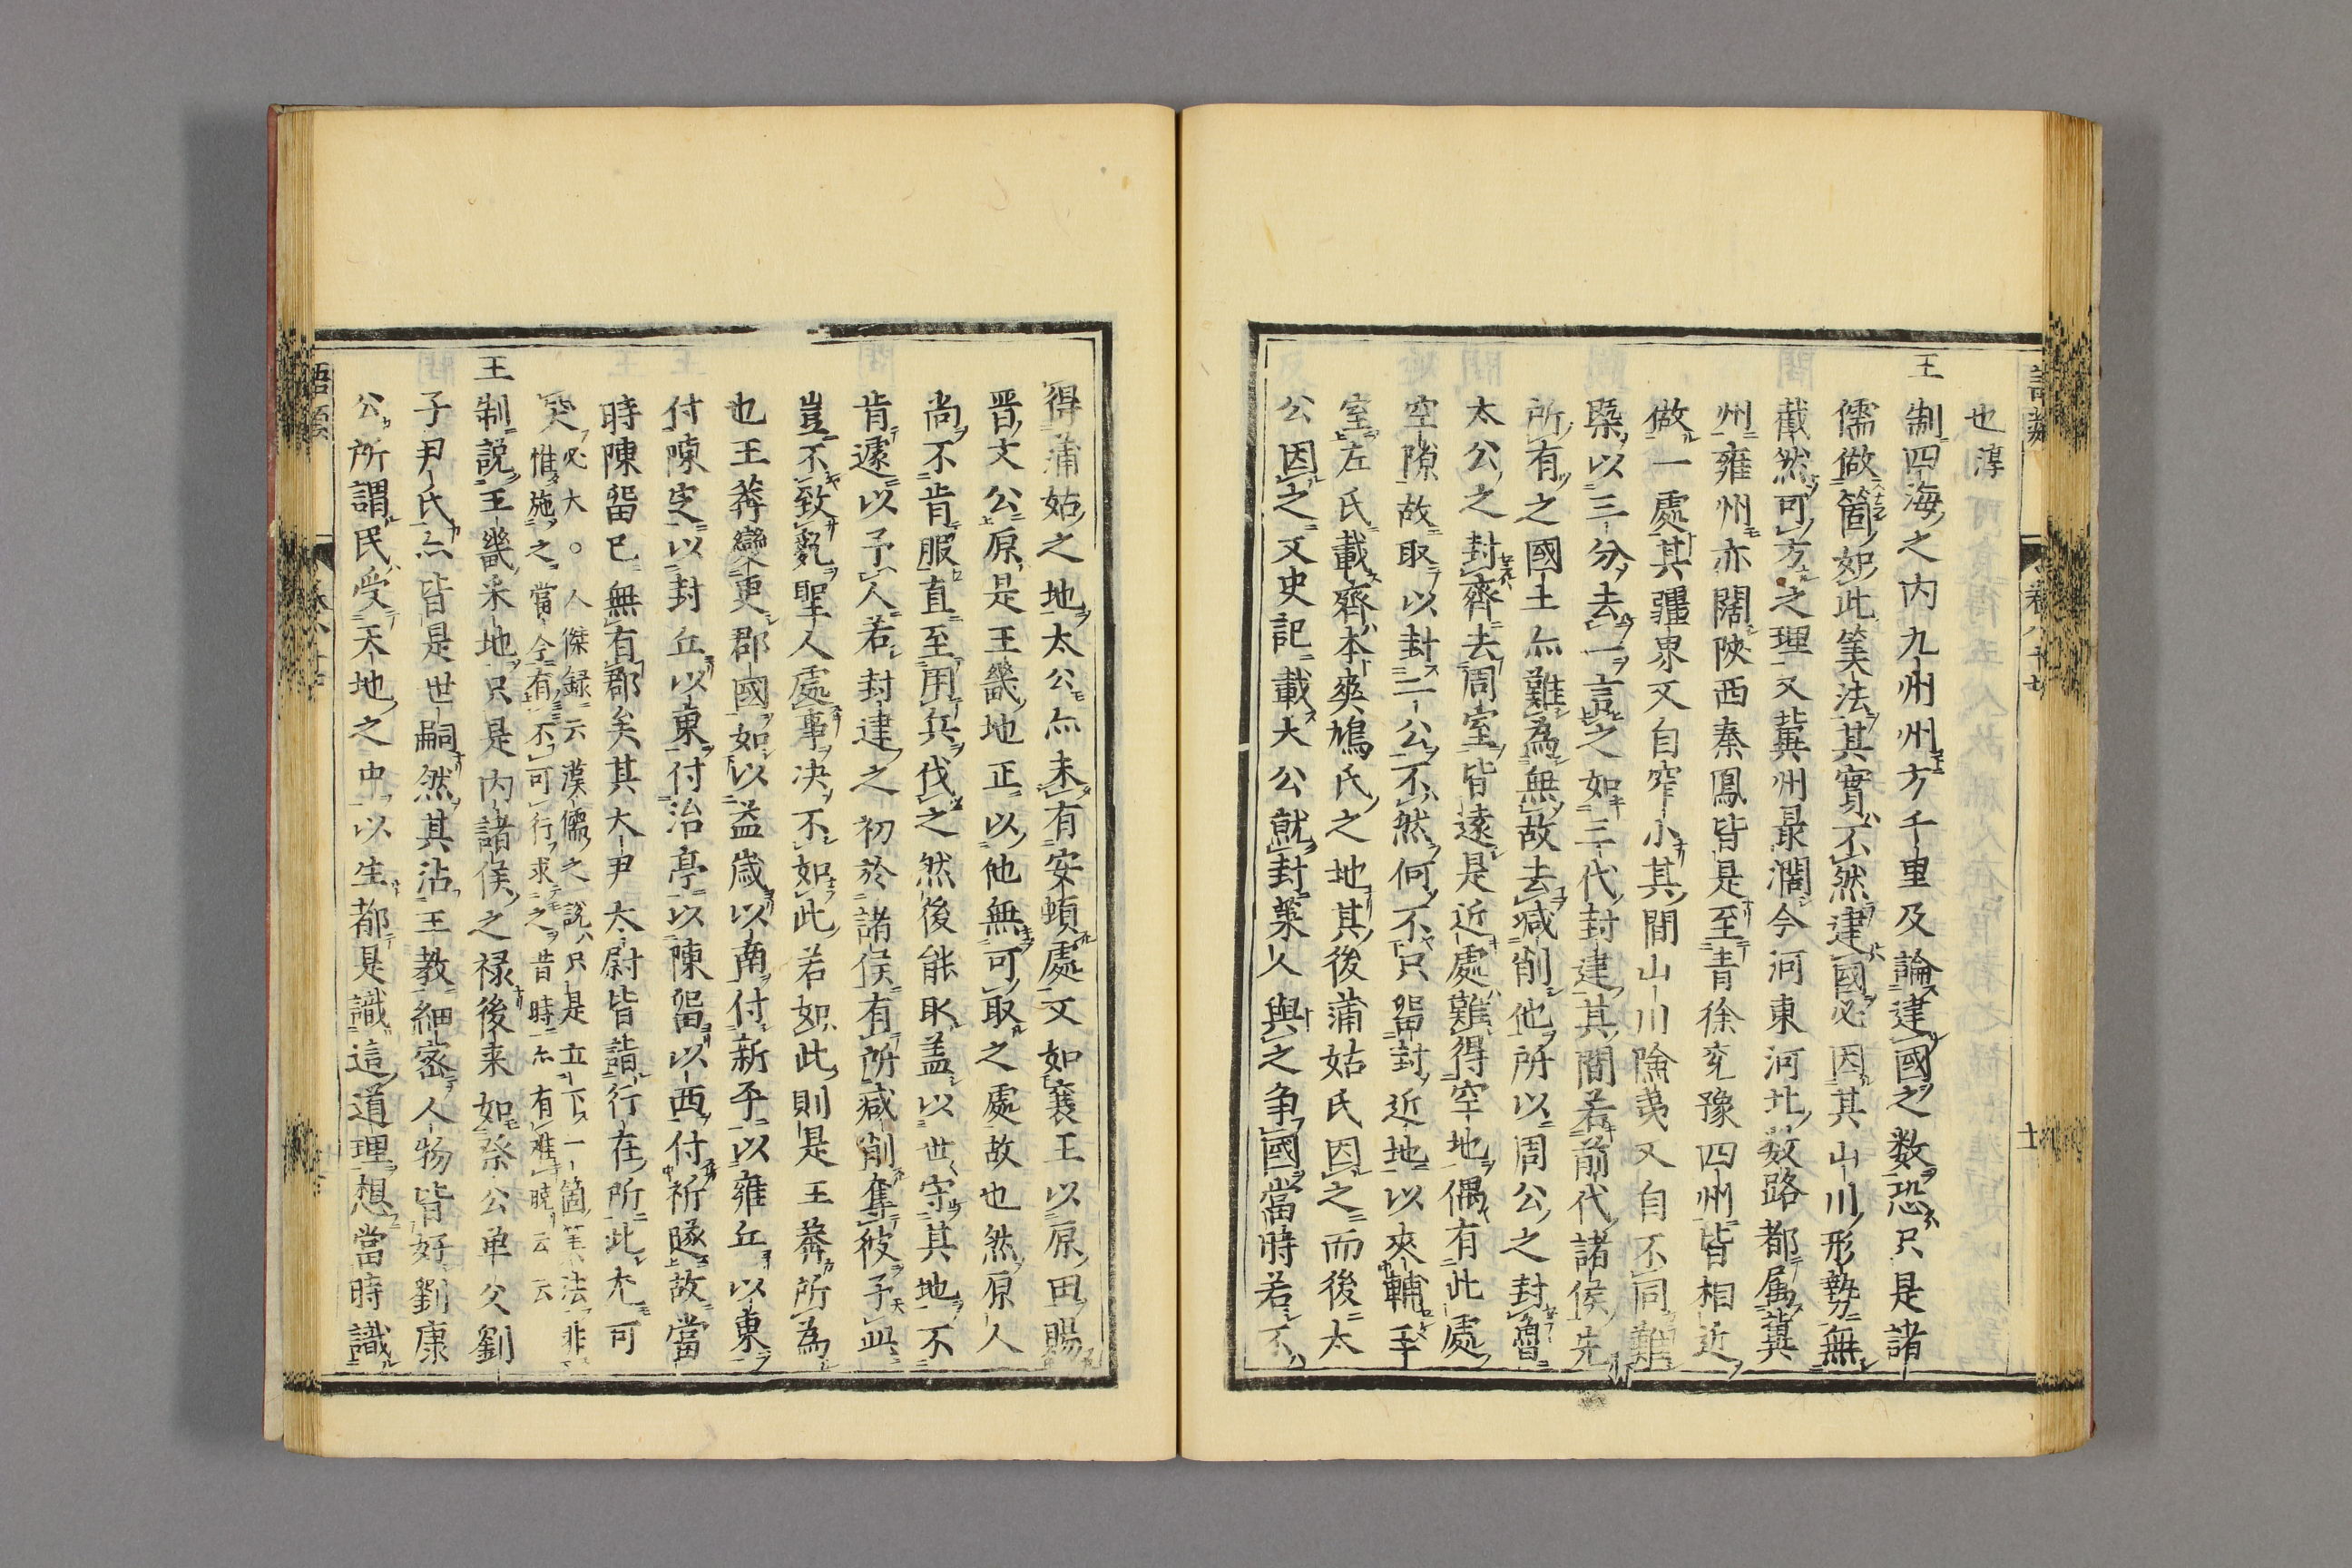 也淳
王制四海之内九州州方千里及論建國之数恐只是諸
儒做箇如此筭法其實不然建國必因其山川形勢無
截然可方之理又冀州最濶今河東河北数路都属冀
州雍州亦闊陝西秦鳳皆是至青徐兗豫四州皆相近
做一處其疆界又自窄小其間山川險夷又自不同難
槩以三分去一言之如三代封建其間若前代諸侯先
所有之國土亦難為無故去减削他所以周公之封魯
太公之封齊去周室皆遠是近處難得空地偶有此處
空隙故取以封二公不然何不只畱封近地以夾輔王
室左氏載齊本爽鳩氏之地其後蒲姑氏因之而後太
公因之又史記載太公就封萊人與之争國當時若不
得蒲姑之地太公亦未有安頓處又如襄王以原田賜
晋文公原是王畿地正以他無可取之處故也然原人
尚不肯服直至用兵伐之然後能取盖以世守其地不
肯遽以予人若封建之初於諸侯有所减削奪彼予此
豈不致亂聖人處事决不如此若如此則是王莽所為
也王莽變更郡國如以益歳以南付新平以雍丘以東
付陳定以封丘以東付治亭以陳畱以西付祈隧故當
時陳畱已無有郡矣其大尹太尉皆詣行在所此尤可
笑必大。人傑録云漢儒之說只是立下一箇筭法非
惟施之當今有不可行求之昔時亦有難曉云云
王制説王畿采地只是内諸侯之禄後来如祭公单父劉
子尹氏亦皆是世嗣然其沾王教細宻人物皆好劉康
公所謂民受天地之中以生都是識這道理想當時識